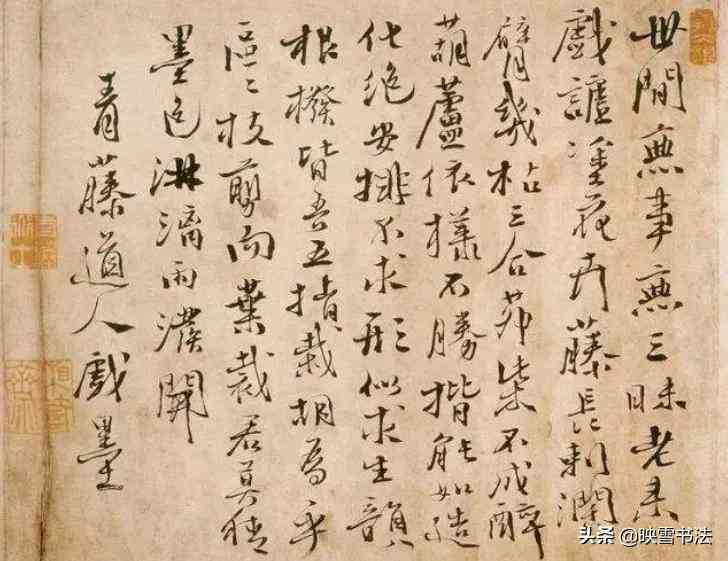 世間無事無三昧老来
戲謔塗花卉藤長刺闊
臂幾枯三合茅柴不成醉
葫蘆依樣不勝揩能如造
化絶安排不求形似求生韻
根撥皆吾五指栽胡為乎
區〻枝剪而葉裁君莫猜
墨色淋漓雨潑開
青藤道人戲墨
头条 @映雪书法